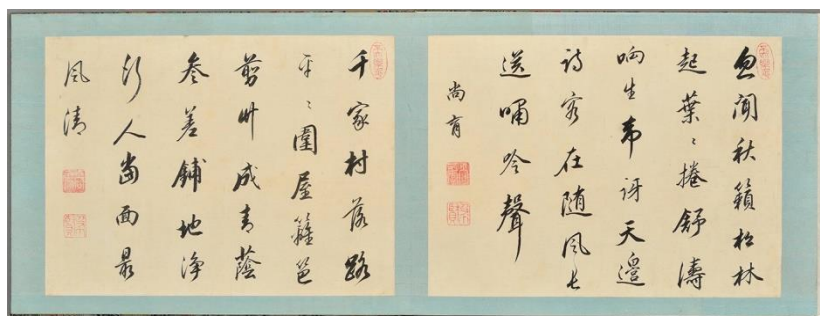 忽聞秋籟松林
起葉〻捲舒濤
响生常訝天邊
詩客在随風長
送嘯吟聲
尚育
千家村落路
平〻圍屋籬笆
剪艸成青蔭
参差鋪地净
行人當面最
風清